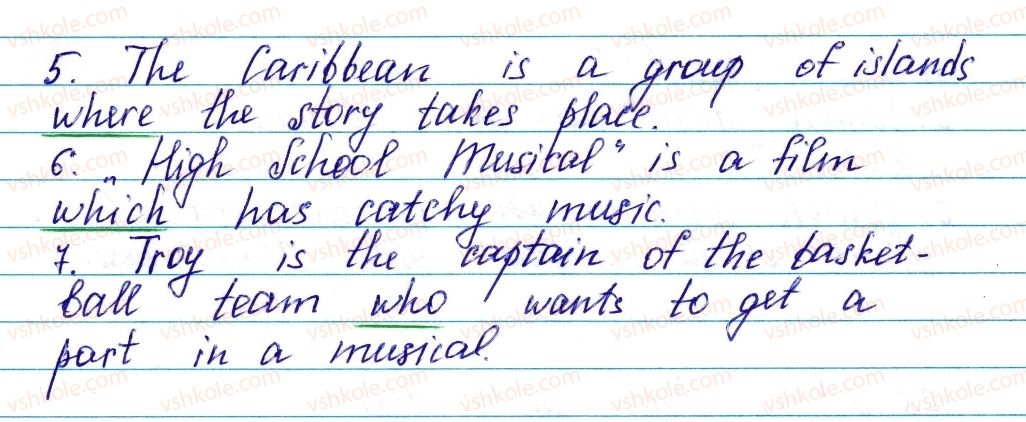 5. The Caribbean is a group of islands
where the story takes place.
6. „High School Musical“ is a film
which has catchy music.
7. Troy is the captain of the basket-
ball team who wants to get a
part in a musical.